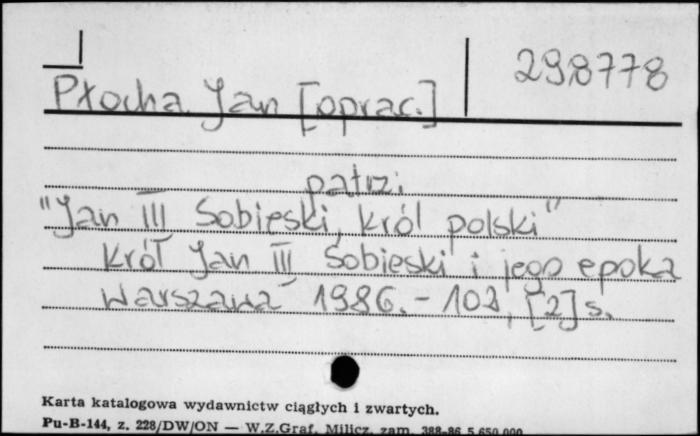 298778
Płocha Jan [oprac.]
patrz:
"Jan III Sobieski, król polski"
Król Jan III Sobieski i jego epoka
Warszawa 1986. - 102, [2] s.
Karta katalogowa wydawnictw ciągłych i zwartych.
Pu-B-144, z. 228/DW/ON — W.Z.Graf. Milicz, zam. 388-86 5.650.000